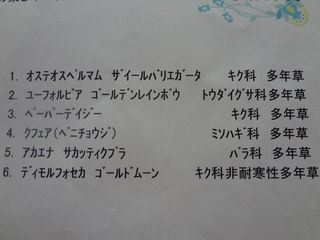 1. ｵｽﾃｵｽﾍﾟﾙﾏﾑ ｻﾞｲｰﾙﾊﾞﾘｴｶﾞｰﾀ キク科 多年草
2. ユーフォルビア ゴールデンレインボウ トウダイグサ科多年草
3. ﾍﾟｰﾊﾟｰﾃﾞｲｼﾞｰ キク科 多年草
4. クフェア(ベニチョウジ) ミソハギ科 多年草
5. アカエナ サカッティクプラ バラ科 多年草
6. ディモルフォセカ ゴールドムーン キク科非耐寒性多年草